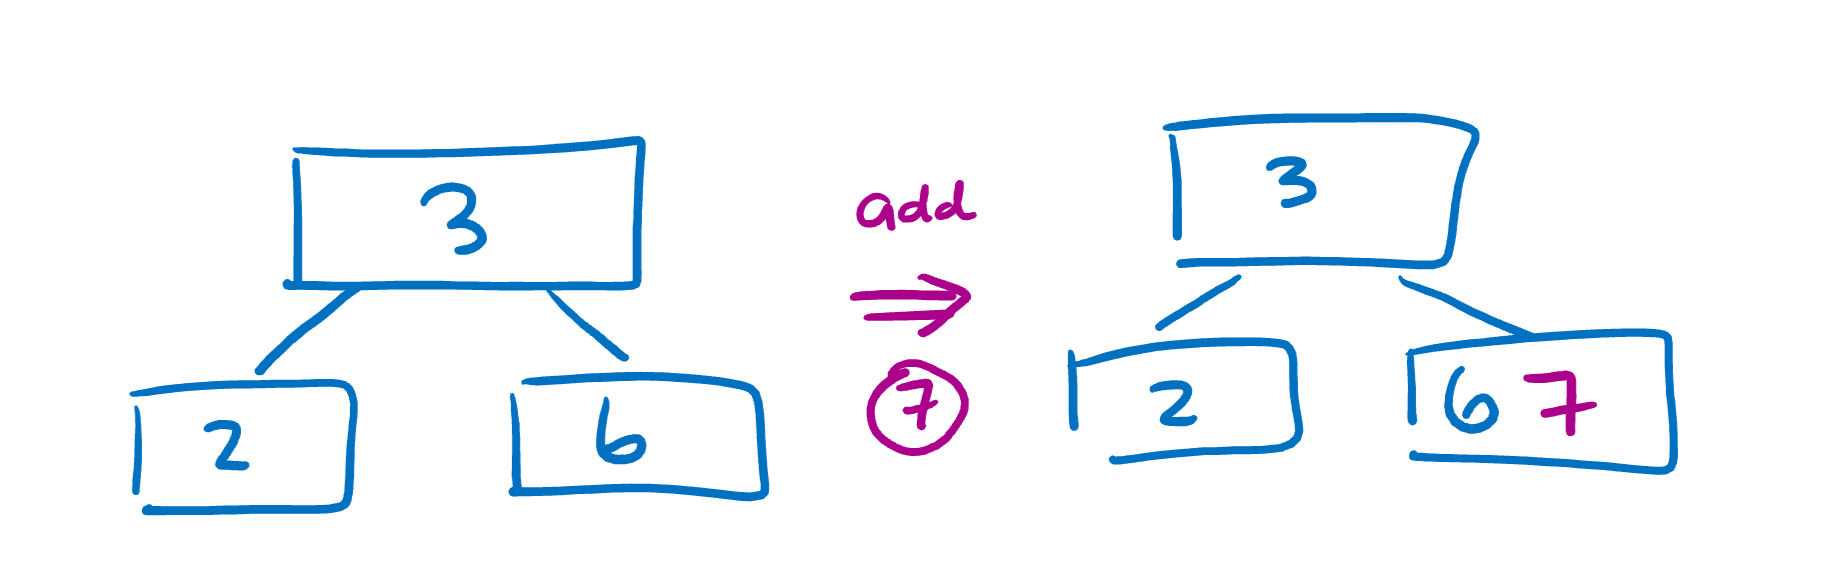 3
2
6
add
7
3
2
6 7